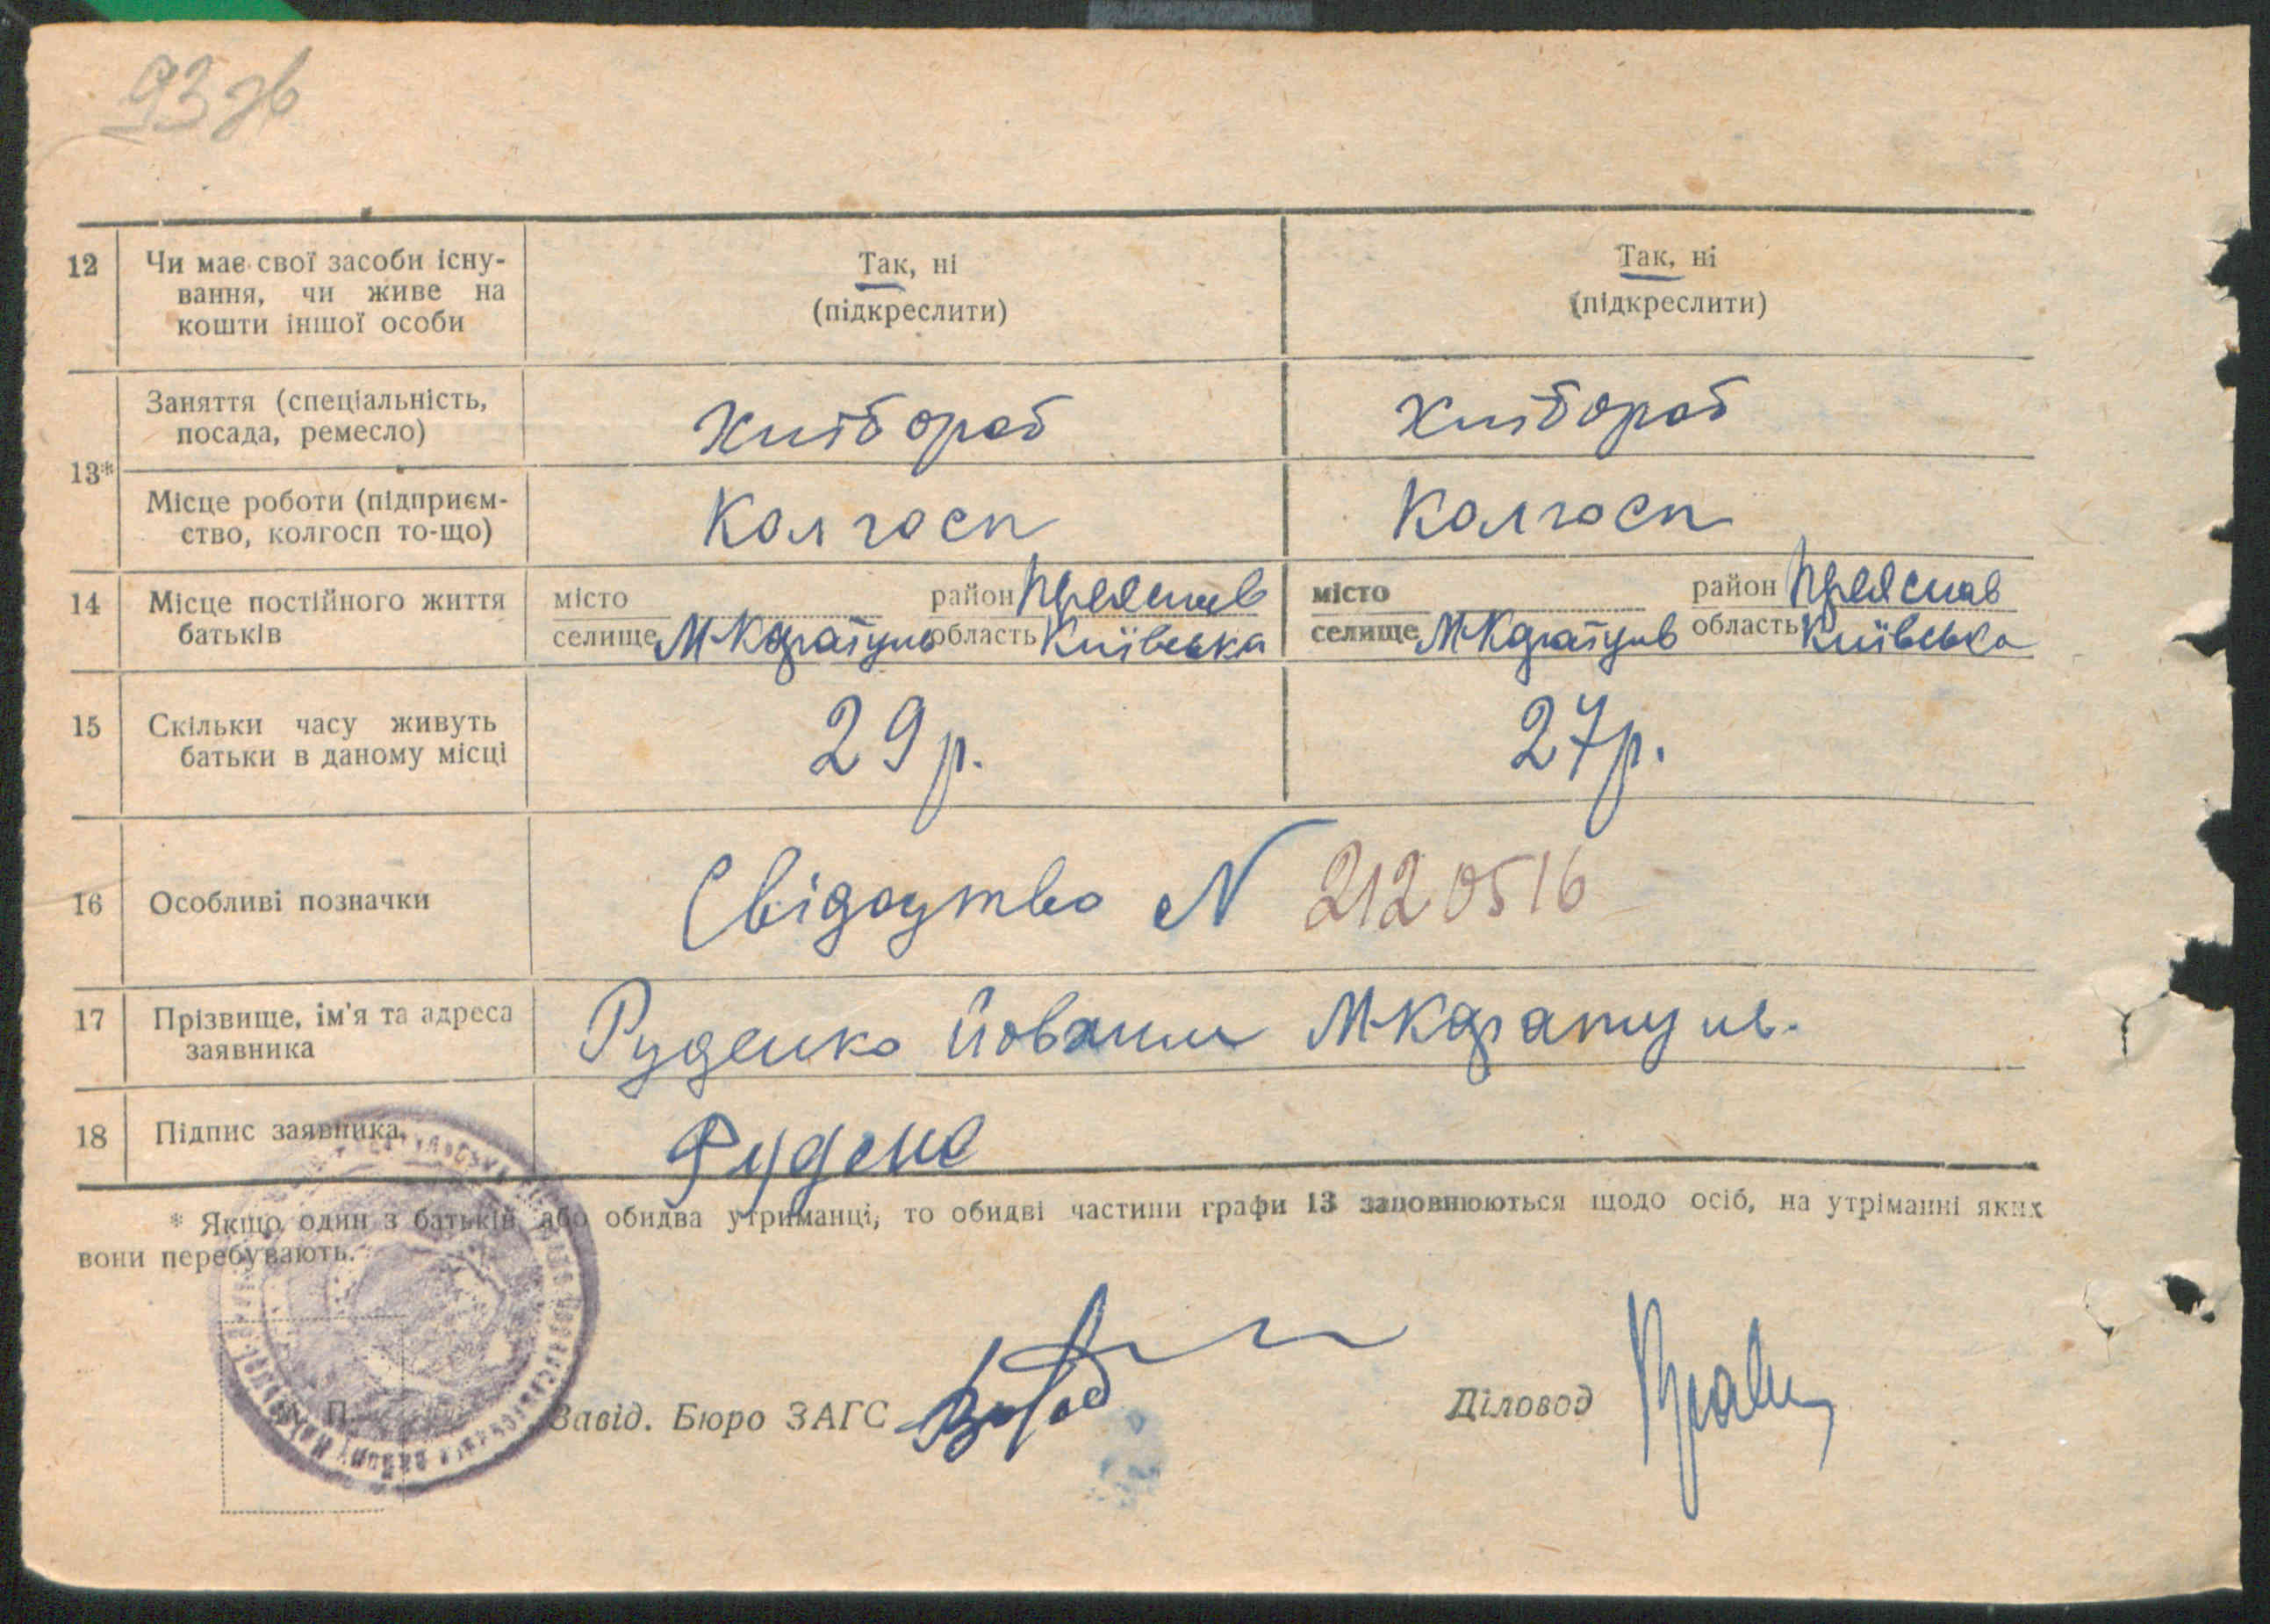 93 зв
12 Чи має свої засоби існу-
вання, чи живе на
кошти іншої особи
Так, ні
(підкреслити)
Так, ні
(підкреслити)
13*
Заняття (спеціальність,
посада, ремесло)
Хлібороб
Хлібороб
Місце роботи (підприєм-
ство, колгосп то-що)
Колгосп
Колгосп
14 Місце постійного життя
батьків
місто район
селище М-Каратуль область Київська
місто район
селище М-Каратуль область Київська
15 Скільки часу живуть
батьки в даному місці
29 р.
27 р.
16 Особливі позначки
Свідоцтво N 2120516
17 Прізвище, ім'я та адреса
заявника
Руденко М-Каратуль.
18 Підпис заявника
Руденко
* Якщо один з батьків або обидва утриманці, то обидві частини графи 13 заповнюються щодо осіб, на утріманні яких
вони перебувають.
М. П.
Завід. Бюро ЗАГС
Діловод